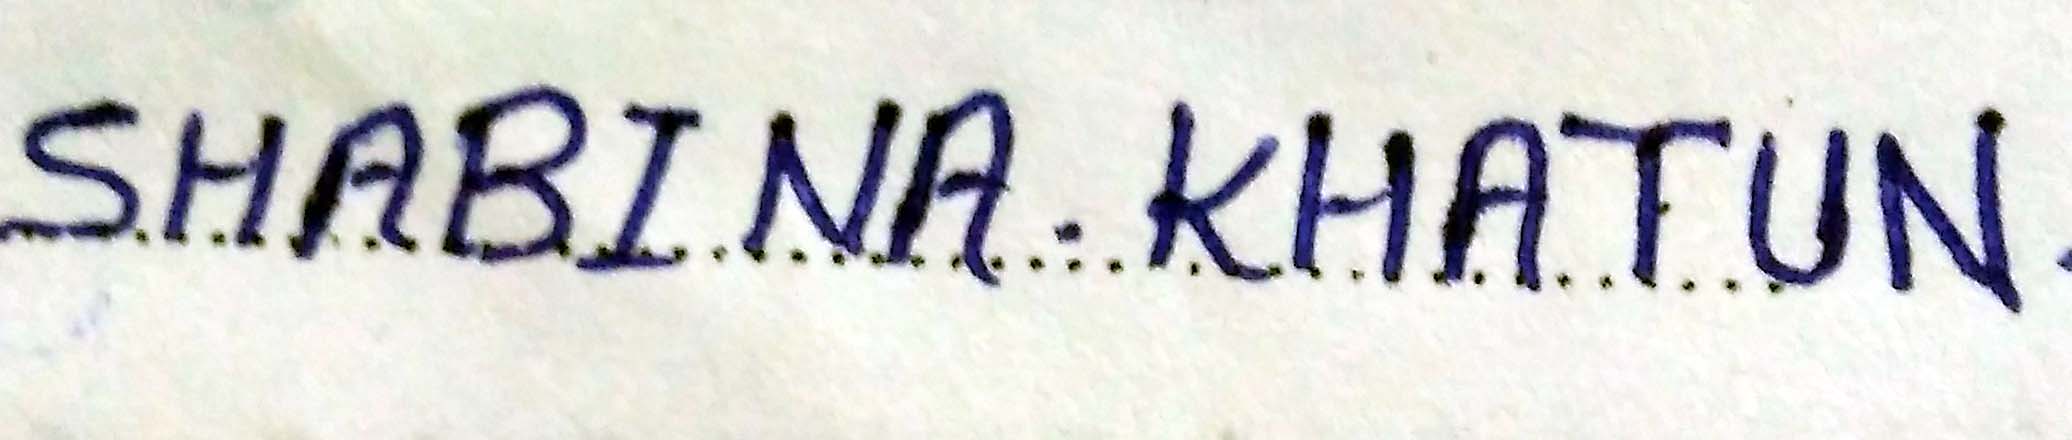 SHABINA. KHATUN.